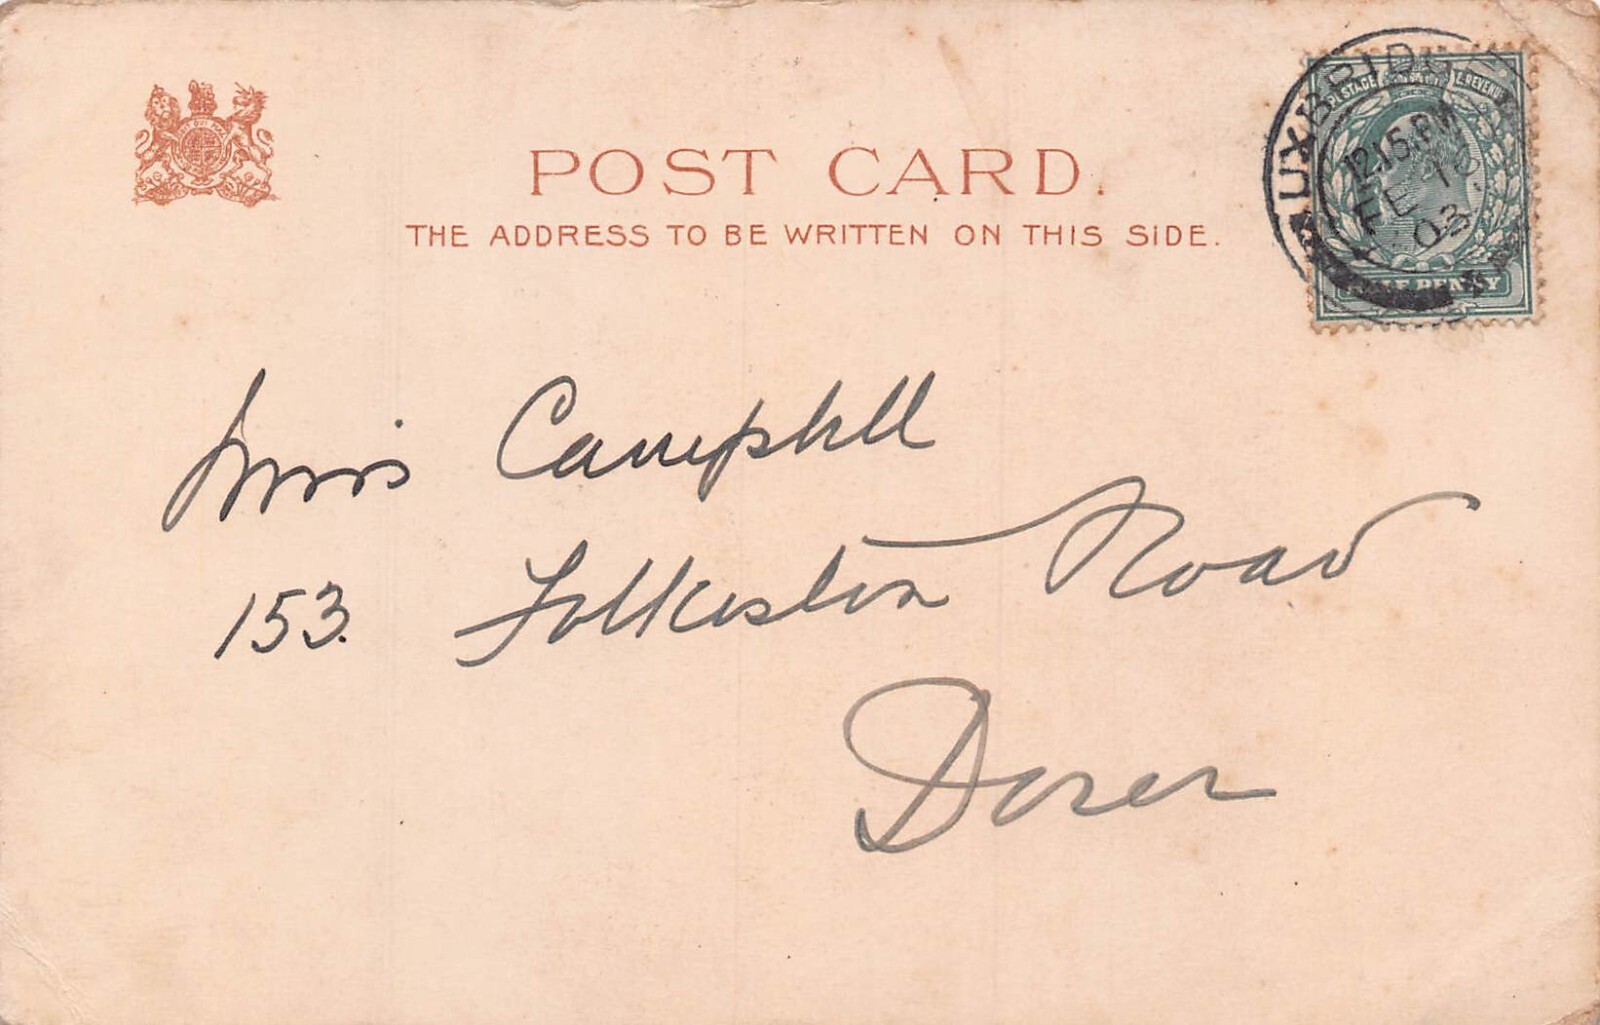 POST CARD.
THE ADDRESS TO BE WRITTEN ON THIS SIDE.
UXBRIDG
12.15.PM
FE 10
03
POSTAGE & REVENUE
HALF PENNY
Miss Campbell
153. Folkeston Road
Dover